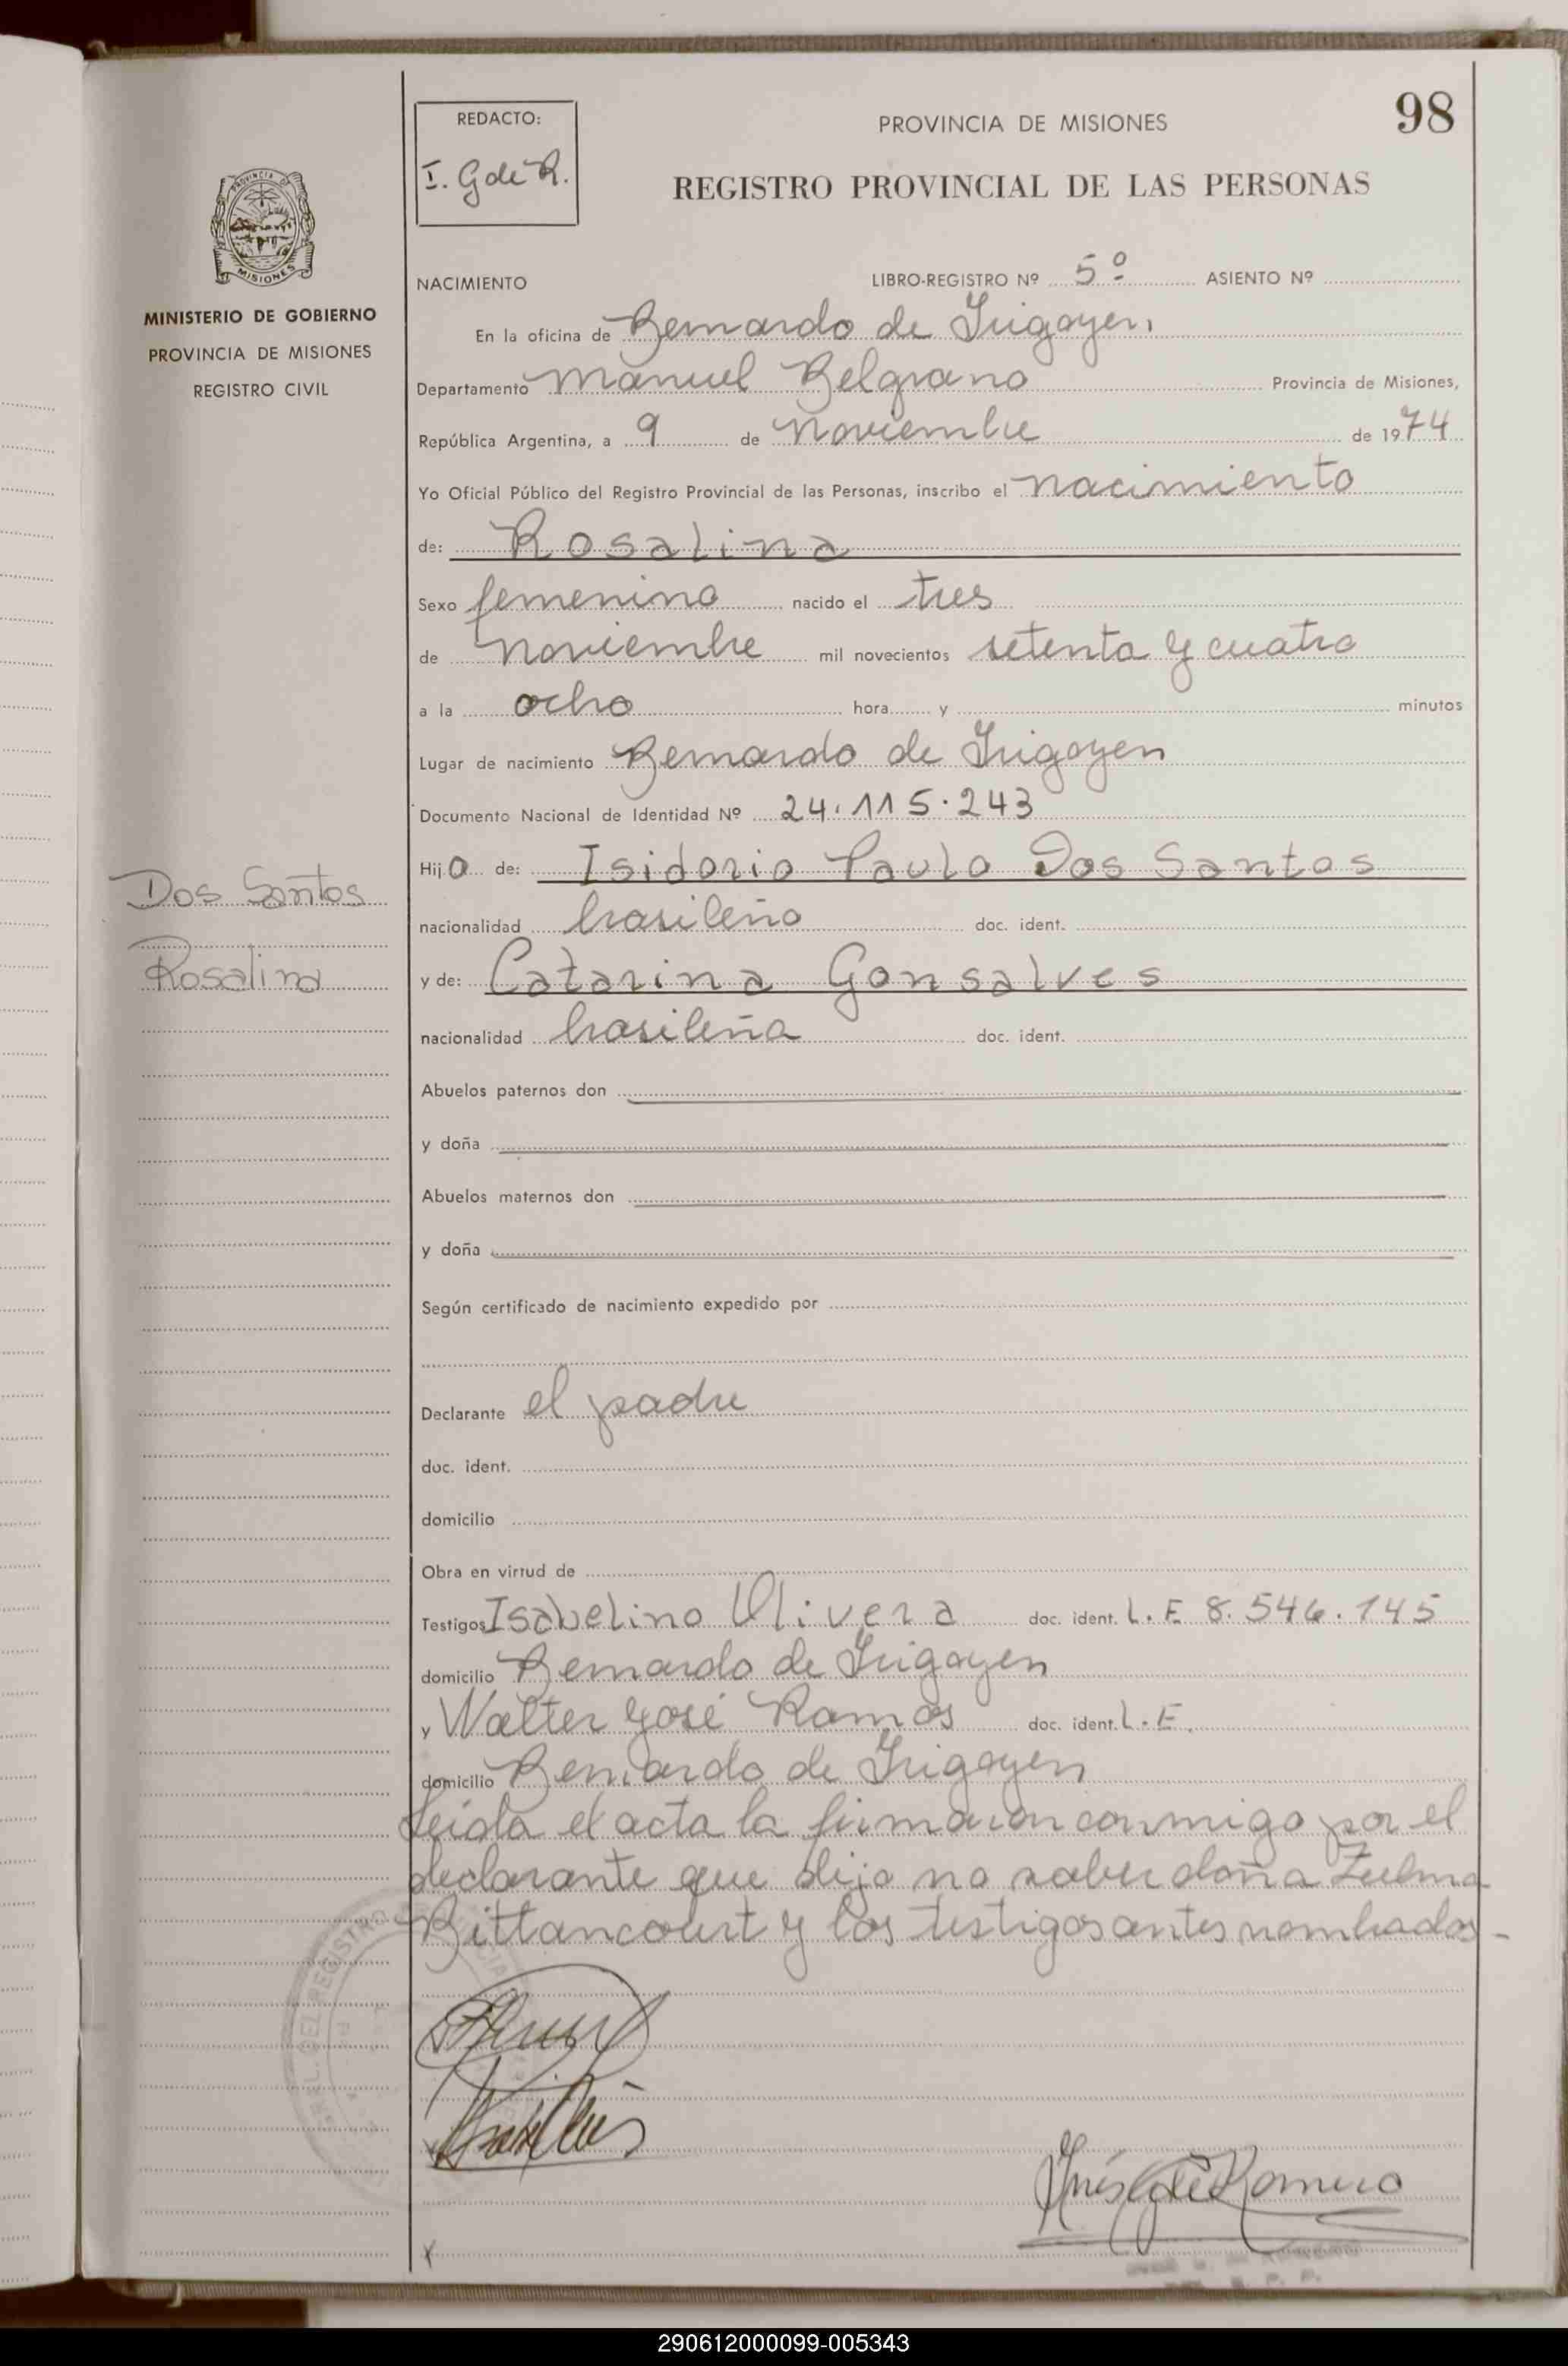 98
REDACTO:
I. G de R.
PROVINCIA DE MISIONES
REGISTRO PROVINCIAL DE LAS PERSONAS
PROVINCIA DE
MISIONES
MINISTERIO DE GOBIERNO
PROVINCIA DE MISIONES
REGISTRO CIVIL
NACIMIENTO LIBRO-REGISTRO Nº 5º ASIENTO Nº
En la oficina de Bernardo de Irigoyen
Departamento Manuel Belgrano Provincia de Misiones,
República Argentina, a 9 de Noviembre de 1974
Yo Oficial Público del Registro Provincial de las Personas, inscribo el nacimiento
de: Rosalina
Sexo femenino nacido el tres
de noviembre mil novecientos setenta y cuatro
a la ocho hora y minutos
Lugar de nacimiento Bernardo de Irigoyen
Documento Nacional de Identidad Nº 24.115.243
Hijo de: Isidorio Paulo Dos Santos
Dos Santos
nacionalidad brasileño doc. ident.
Rosalina
y de: Catarina Gonsalves
nacionalidad brasileña doc. ident.
Abuelos paternos don
y doña
Abuelos maternos don
y doña
Según certificado de nacimiento expedido por
Declarante el padre
doc. ident.
domicilio
Obra en virtud de
Testigos Isabelino Olivera doc. ident. L. E 8.546.145
domicilio Bernardo de Irigoyen
y Walter José Ramos doc. ident. L. E.
domicilio Bernardo de Irigoyen
Leida el acta la firmaron conmigo por el
declarante que dijo no saber doña Zulma
Bittancourt y los testigos antes nombrados -
DEL REGISTRO
Inés G de Romero
290612000099-005343